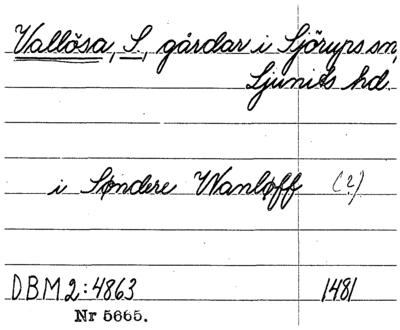 Vallösa, S, gårdar i Sjörups sn,
Ljunits hd.
i Søndere Wanløff (?)
DBM2:4863 1481
Nr 5665.